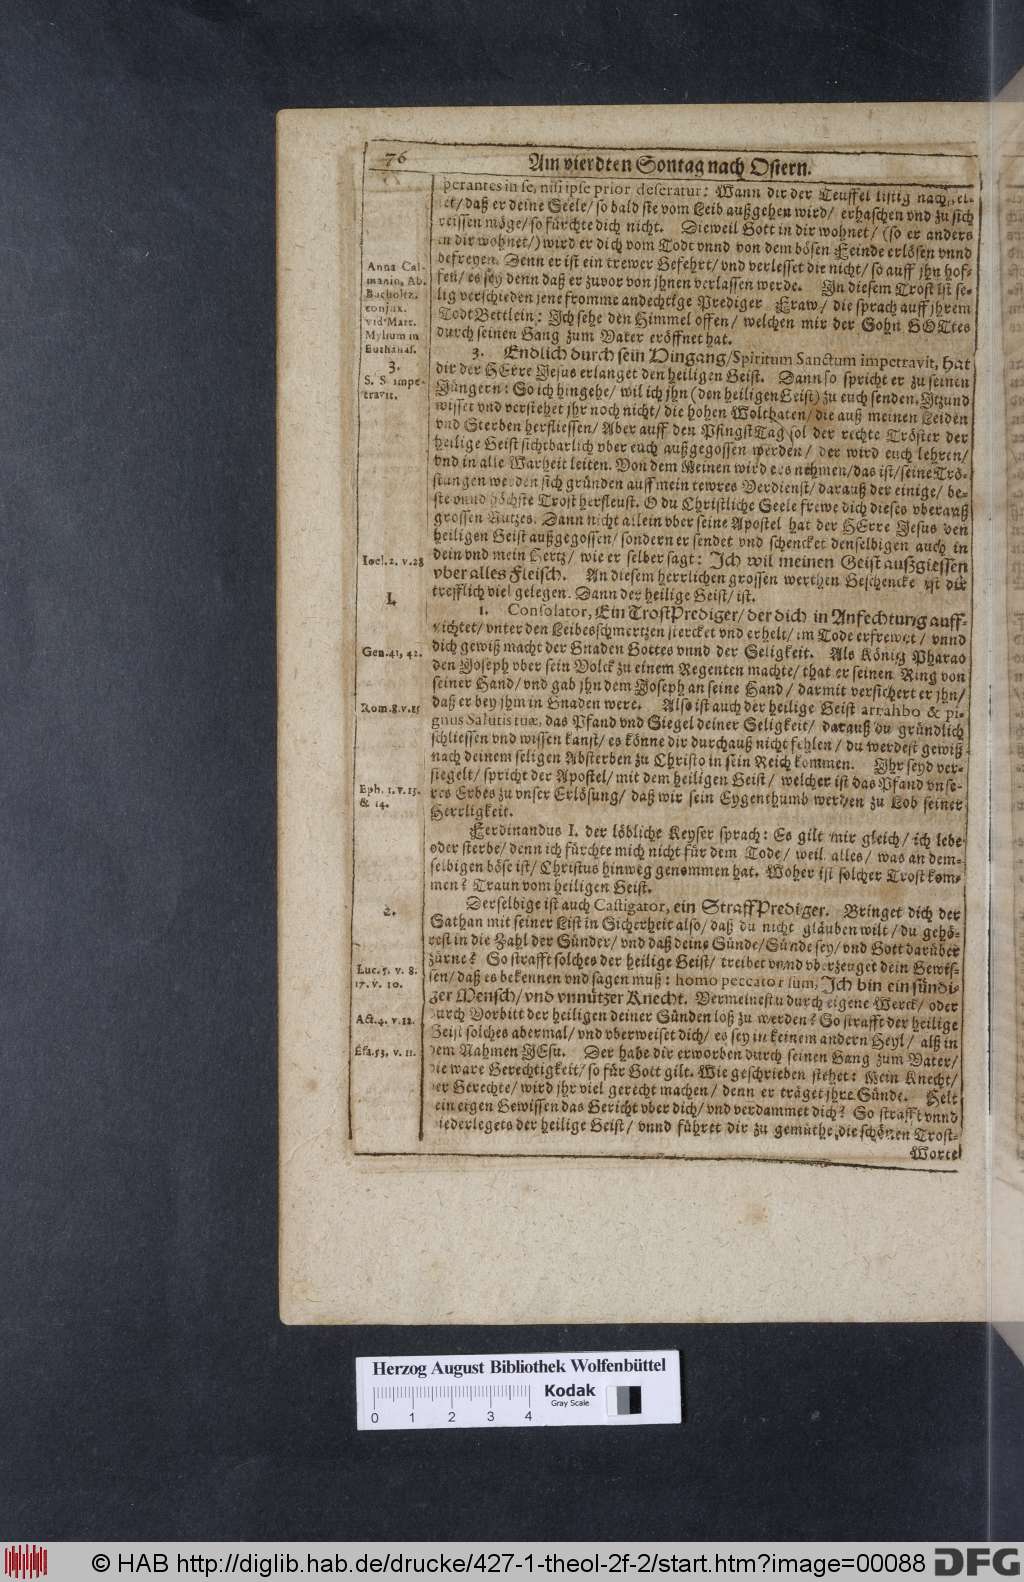 76
Am vierdten Sontag nach Ostern.
perantes in se, nisi ipse prior deseratur: Wann dir der Teuffel listig nach
daß er deine Seele/ so bald sie vom Leib außgehen wird/ erhaschen vnd zu sich
reissen möge/ so fürchte dich nicht. Dieweil Gott in dir wohnet/ (so er anders
in dir wohnet/) wird er dich vom Todt vnnd von dem bösen Feinde erlösen vnnd
befreyen. Denn er ist ein trewer Gefehrt/ vnd verlesset dir nicht/ so auff jhn hof-
fen/ es sey denn daß er zuvor von jhnen verlassen werde. In diesem Trost ist se-
lig verschieden jene fromme andechtige Prediger Fraw/ die sprach auff jhrem
TodtBettlein: Ich sehe den Himmel offen/ welchen mir der Sohn GOTtes
durch seinen Gang zum Vater eröffnet hat.
Anna Cal-
manin, Ab.
Bucholtz.
conjux.
vid. Mart.
Mylium in
Buchanas.
3.
S. S. impe-
travit.
3. Endlich durch sein Hingang/ Spiritum Sanctum impetravit, hat
dir der HErre Jesus erlanget den heiligen Geist. Dann so spricht er zu seinen
Jüngern: So ich hingehe/ wil ich jhn (den heiligen Geist) zu euch senden. Jtzund
wisset vnd verstehet jhr noch nicht/ die hohen Wolthaten/ die auß meinen Leiden
vnd Sterben herfliessen/ Aber auff den PfingstTag sol der rechte Tröster der
heilige Geist sichtbarlich vber euch außgegossen werden/ der wird euch lehren/
vnd in alle Warheit leiten. Von dem Meinen wird ers nehmen/ das ist/ seine Trö-
stungen werden sich gründen auff mein tewres Verdienst/ darauß der einige/ be-
ste vnnd höchste Trost herfleust. O du Christliche Seele frewe dich dieses vberauß
grossen Nutzes. Dann nicht allein vber seine Apostel hat der HErre Jesus den
heiligen Geist außgegossen/ sondern er sendet vnd schencket denselbigen auch in
dein vnd mein Hertz/ wie er selber sagt: Ich wil meinen Geist außgiessen
vber alles Fleisch. An diesem herrlichen grossen werthen Geschencke ist dir
trefflich viel gelegen. Dann der heilige Geist/ ist.
Ioel. 2. v. 28
1.
1. Consolator, Ein TrostPrediger/ der dich in Anfechtung auff-
richtet/ vnter den Leibesschmertzen stercket vnd erhelt/ im Tode erfrewet/ vnnd
dich gewiß macht der Gnaden Gottes vnnd der Seligkeit. Als König Pharao
den Joseph vber sein Volck zu einem Regenten machte/ that er seinen Ring von
seiner Hand/ vnd gab jhn dem Joseph an seine Hand/ darmit versichert er jhn/
daß er bey jhm in Gnaden were. Also ist auch der heilige Geist arrahbo & pi-
gnus Salutis tuæ, das Pfand vnd Siegel deiner Seligkeit/ darauß du gründlich
schliessen vnd wissen kanst/ es könne dir durchauß nicht fehlen/ du werdest gewiß
nach deinem seligen Absterben zu Christo in sein Reich kommen. Ihr seyd ver-
siegelt/ spricht der Apostel/ mit dem heiligen Geist/ welcher ist das Pfand vnse-
res Erbes zu vnser Erlösung/ daß wir sein Eygenthumb werden zu Lob seiner
Herrligkeit.
Gen. 41, 42.
Rom. 8. v. 15
Eph. 1. v. 13.
& 14.
Ferdinandus I. der löbliche Keyser sprach: Es gilt mir gleich/ ich lebe
oder sterbe/ denn ich fürchte mich nicht für dem Tode/ weil alles/ was an dem-
selbigen böse ist/ Christus hinweg genommen hat. Woher ist solcher Trost kom-
men? Traun vom heiligen Geist.
2.
Derselbige ist auch Castigator, ein StraffPrediger. Bringet dich der
Sathan mit seiner List in Sicherheit also/ daß du nicht gläuben wilt/ du gehö-
rest in die Zahl der Sünder/ vnd daß deine Sünde/ Sünde sey/ vnd Gott darüber
zürne? So strafft solches der heilige Geist/ treibet vnnd vberzeuget dein Gewis-
sen/ daß es bekennen vnd sagen muß: homo peccator sum, Ich bin ein sündi-
ger Mensch/ vnd vnnützer Knecht. Vermeinestu durch eigene Werck/ oder
durch Vorbitt der heiligen deiner Sünden loß zu werden? So strafft der heilige
Geist solches abermal/ vnd vberweiset dich/ es sey in keinem andern Heyl/ alß in
dem Nahmen JEsu. Der habe dir erworben durch seinen Gang zum Vater/
die ware Gerechtigkeit/ so für Gott gilt. Wie geschrieben stehet: Mein Knecht/
der Gerechte/ wird jhr viel gerecht machen/ denn er träget jhre Sünde. Helt
dein eigen Gewissen das Gericht vber dich/ vnd verdammet dich? So strafft vnnd
niederlegets der heilige Geist/ vnnd führet dir zu gemüthe die schönen Trost-
Worte
Luc. 5. v. 8.
17. v. 10.
Act. 4. v. 12.
Esa. 53. v. 11.
Herzog August Bibliothek Wolfenbüttel
0 1 2 3 4
Kodak
Gray Scale
© HAB http://diglib.hab.de/drucke/427-1-theol-2f-2/start.htm?image=00088
DFG